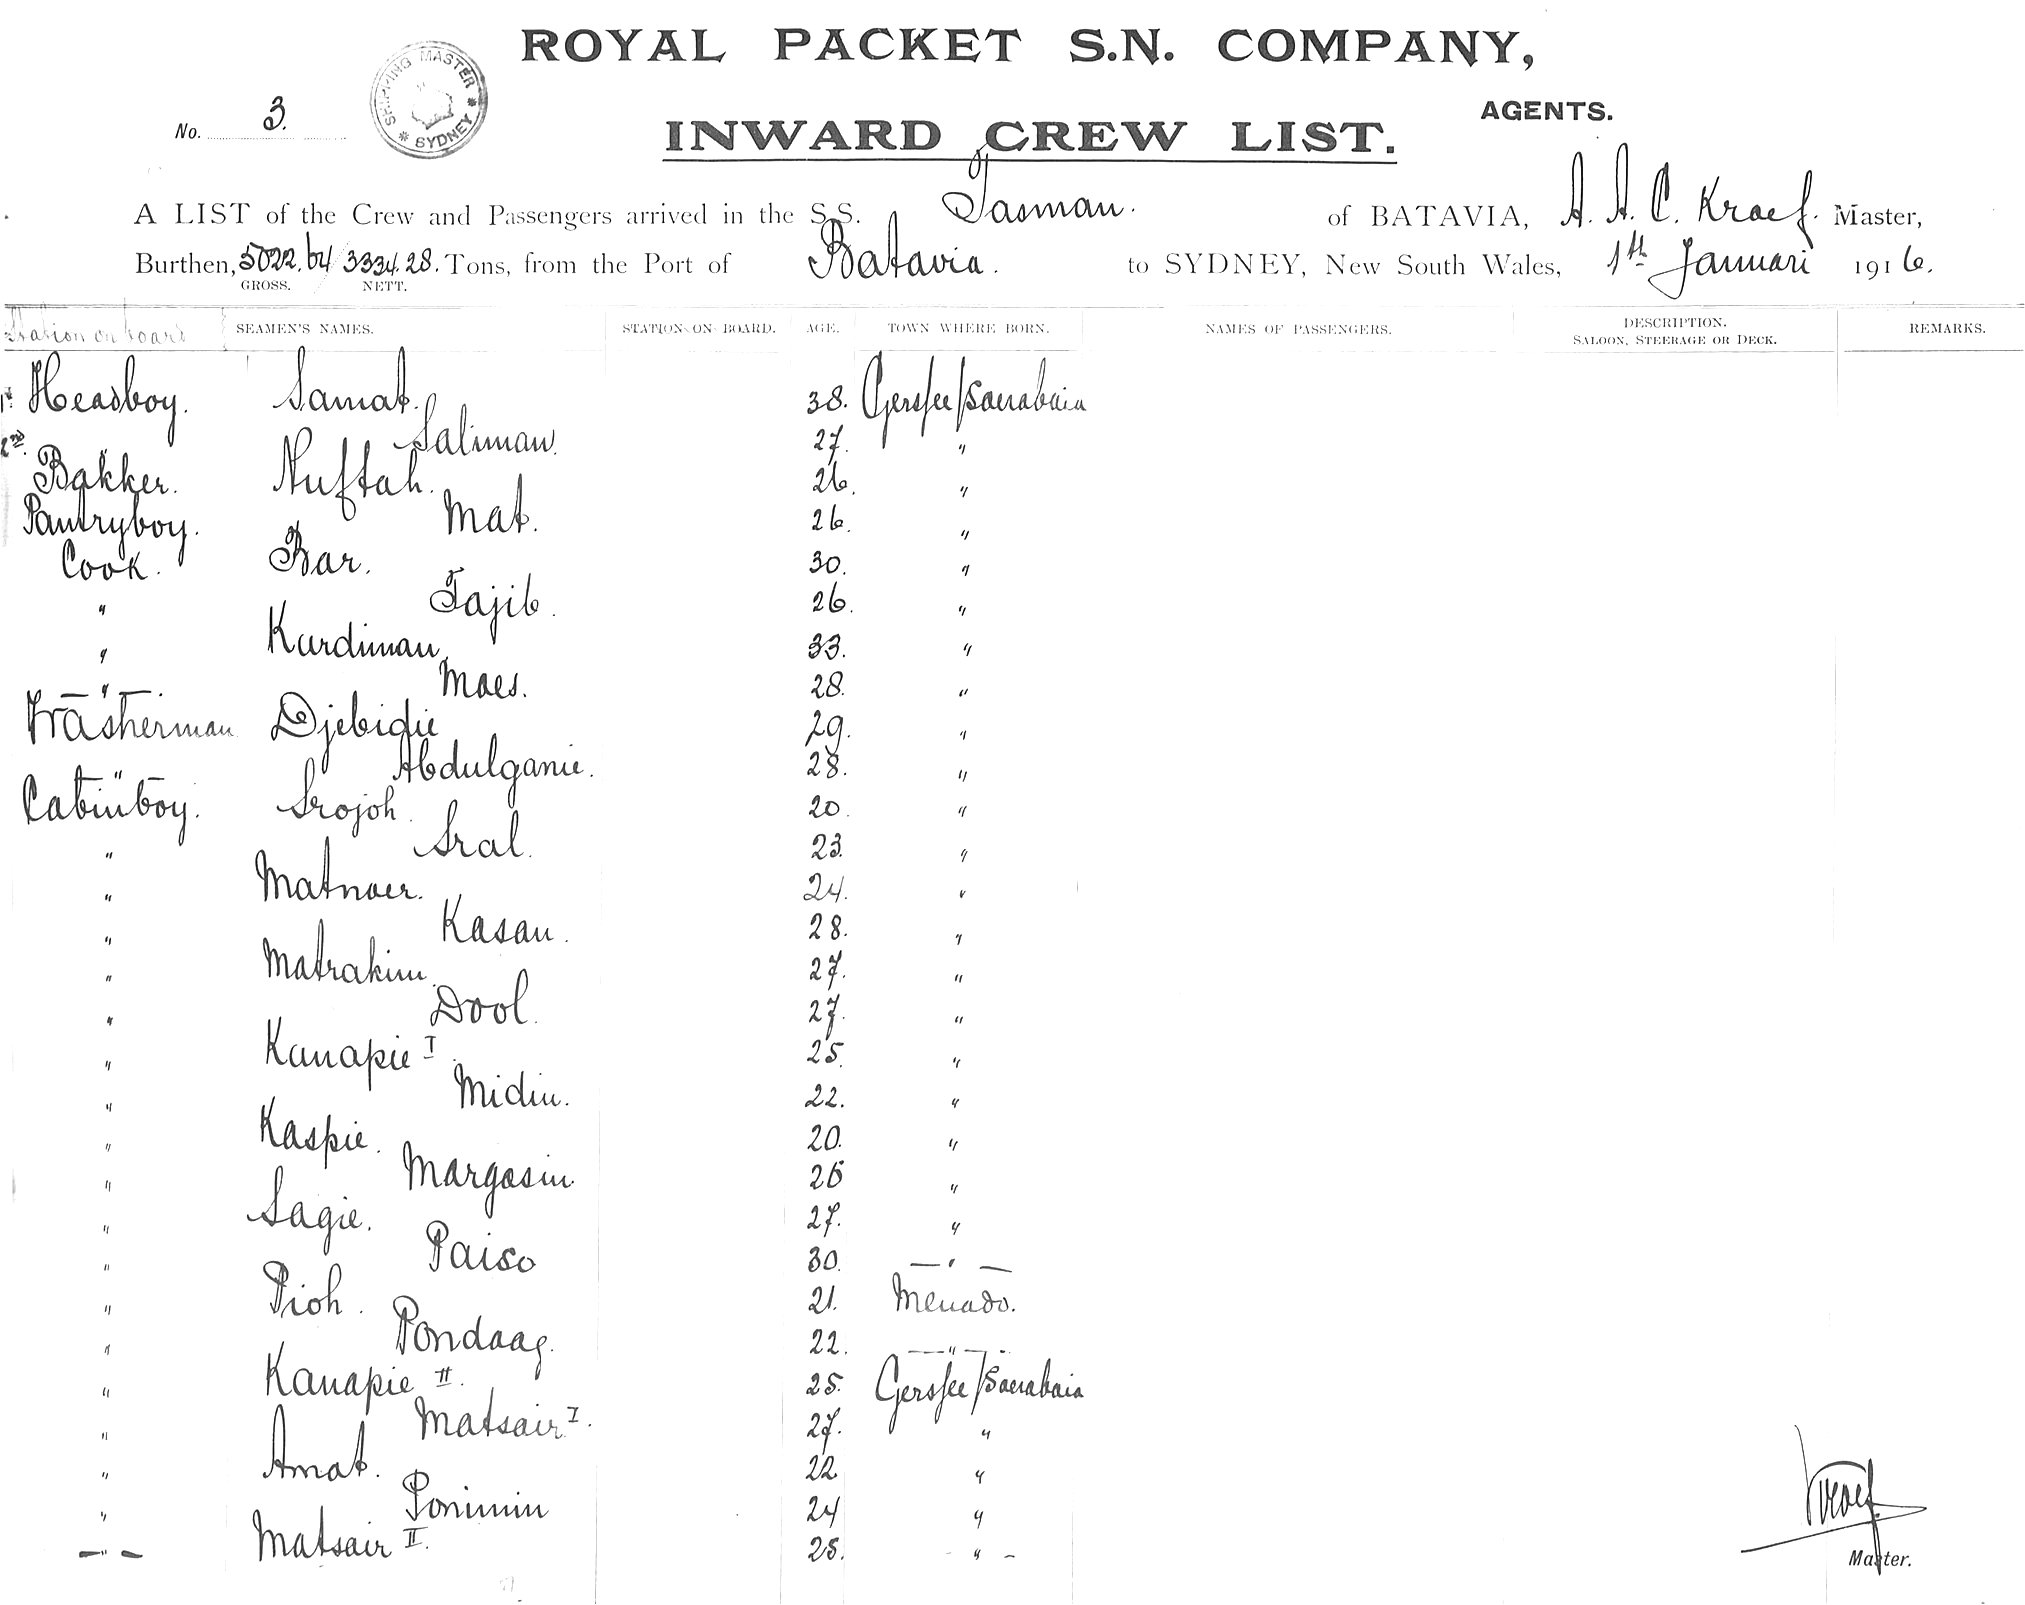 ROYAL PACKET S.N. COMPANY,
AGENTS.
No. 3.
SHIPPING MASTER * SYDNEY *
INWARD CREW LIST.
A LIST of the Crew and Passengers arrived in the S.S. Tasman. of BATAVIA, A. A. C. Kraef. Master,
Burthen, 5022.64 / 3334.28. Tons, from the Port of Batavia. to SYDNEY, New South Wales, 1th Januari 1916.
GROSS. NETT.
Station on board SEAMEN'S NAMES. STATION ON BOARD. AGE. TOWN WHERE BORN. NAMES OF PASSENGERS. DESCRIPTION. SALOON, STEERAGE OR DECK. REMARKS.
1st Headboy. Samat. 38. Gersfee/Soerabaia
2nd Saliman. 27. "
Bakker. Nuftah. 26. "
Pantryboy. Mat. 26. "
Cook. Bar. 30. "
" Tajib. 26. "
" Kardiman. 33. "
— " —. Maes. 28. "
Washerman Djebidie 29. "
— " — Abdulganie. 28. "
Cabinboy. Srojoh. 20. "
" Sral. 23. "
" Matnoer. 24. "
" Kasan. 28. "
" Matrakim. 27. "
" Dool. 27. "
" Kanapie I. 25. "
" Midin. 22. "
" Kaspie. 20. "
" Margasin. 26 "
" Sagie. 27. "
" Paiso 30. — " —
" Pioh. 21. Menado.
" Pondaag. 22. — " —.
" Kanapie II. 25. Gersfee/Soerabaia
" Matsair I. 27. "
" Amat. 22 "
" Ponimin 24 "
— " — Matsair II. 25. - " -
Kraef
Master.